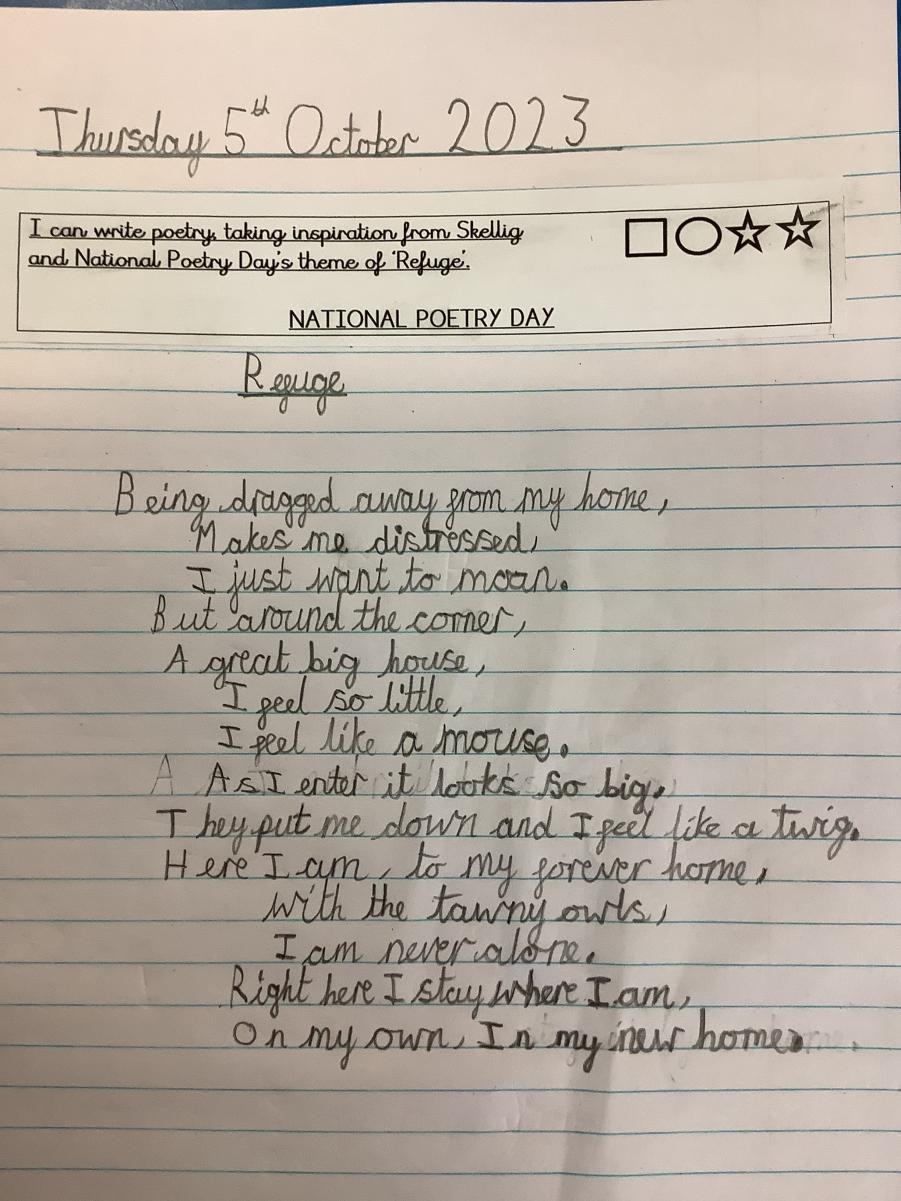 Thursday 5th October 2023
I can write poetry, taking inspiration from Skellig
and National Poetry Day's theme of 'Refuge'.
NATIONAL POETRY DAY
Refuge
Being dragged away from my home,
Makes me distressed,
I just want to moan.
But around the corner,
A great big house,
I feel so little,
I feel like a mouse.
A As I enter it looks so big.
They put me down and I feel like a twig.
Here I am, to my forever home,
With the tawny owls,
I am never alone.
Right here I stay where I am,
On my own, In my new home.